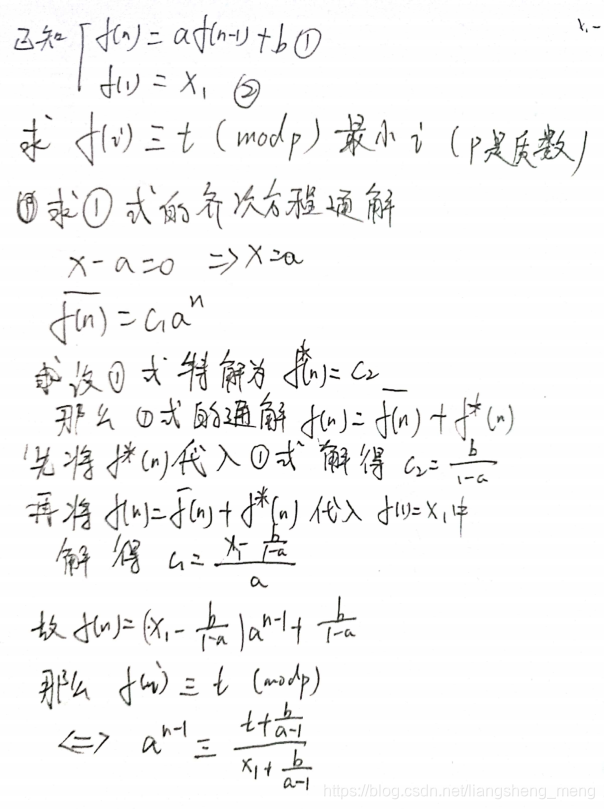 x₁-
已知 { f(n) = af(n-1) + b ①
f(1) = x₁ ②
求 f(i) ≡ t (mod p) 最小 i (p是质数)
求①式的齐次方程通解
x - a = 0 => x = a
f̅(n) = c₁aⁿ
求设①式特解为 f*(n) = c₂
那么①式的通解 f(n) = f̅(n) + f*(n)
先将 f*(n) 代入①式 解得 c₂ = b/(1-a)
再将 f(n) = f̅(n) + f*(n) 代入 f(1) = x₁中
解得 c₁ = (x₁ - b/(1-a))/a
故 f(n) = (x₁ - b/(1-a))aⁿ⁻¹ + b/(1-a)
那么 f(i) ≡ t (mod p)
<=> aⁿ⁻¹ ≡ (t + b/(a-1))/(x₁ + b/(a-1))
https://blog.csdn.net/liangsheng_meng